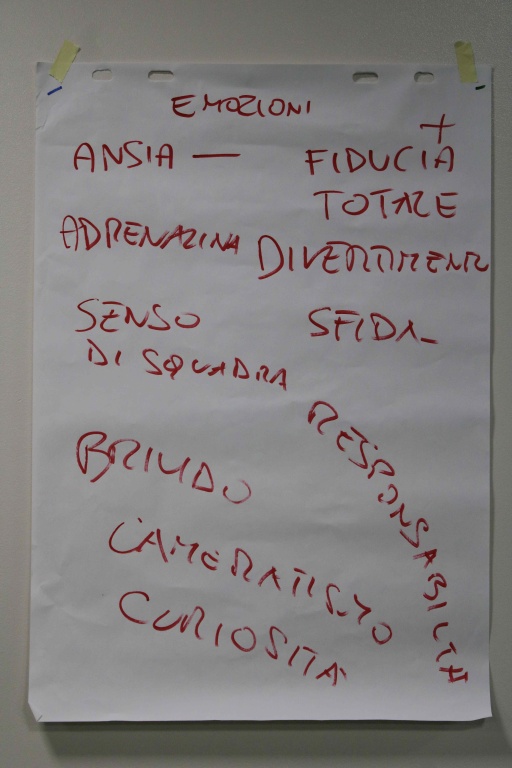 EMOZIONI
ANSIA —
+
FIDUCIA
TOTALE
ADRENALINA
DIVERTIMENTO
SENSO
DI SQUADRA
SFIDA
RESPONSABILITÀ
BRIVIDO
CAMERATISMO
CURIOSITÀ